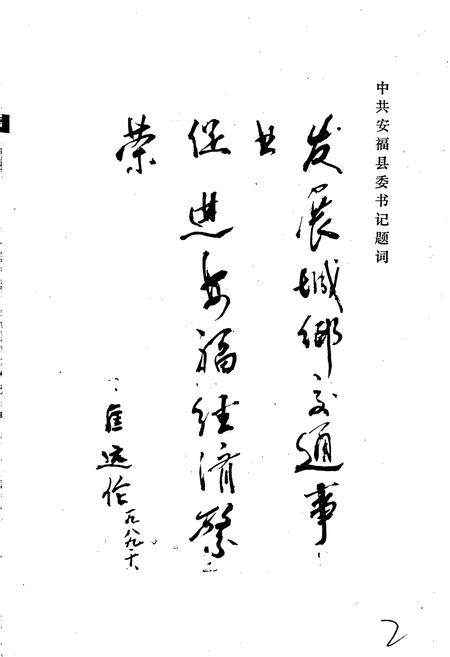 中共安福县委书记题词
发展城乡交通事
业
促进安福经济繁
荣
匡远伦
一九八九.十.
2